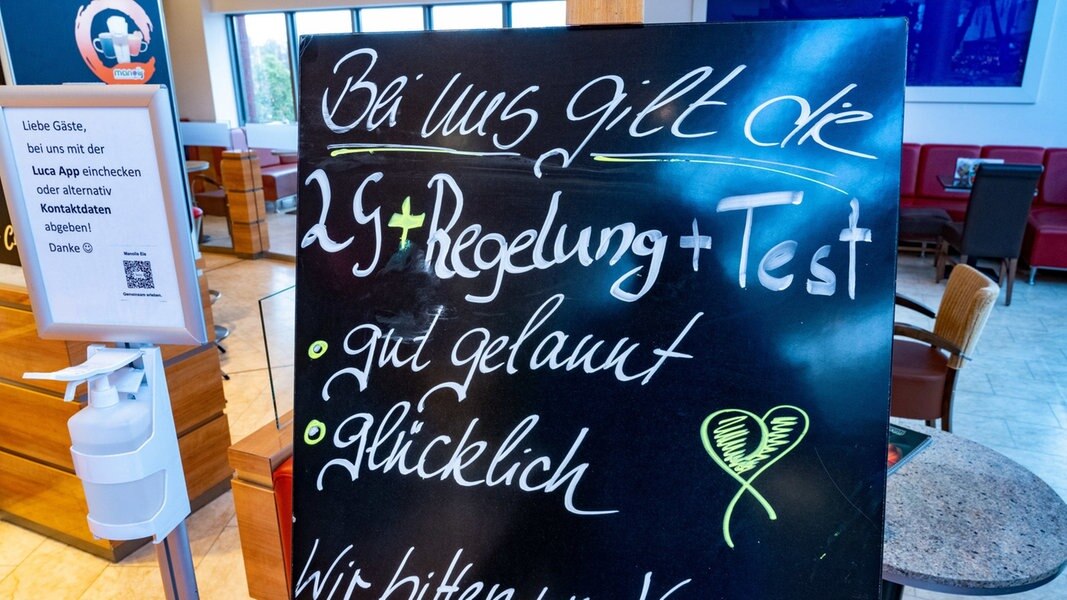 Bei uns gilt die
2G+Regelung + Test
gut gelaunt
glücklich
Wir bitten
Liebe Gäste,
bei uns mit der
Luca App einchecken
oder alternativ
Kontaktdaten
abgeben!
Danke ☺
Manolis Eis
Gemeinsam erleben.